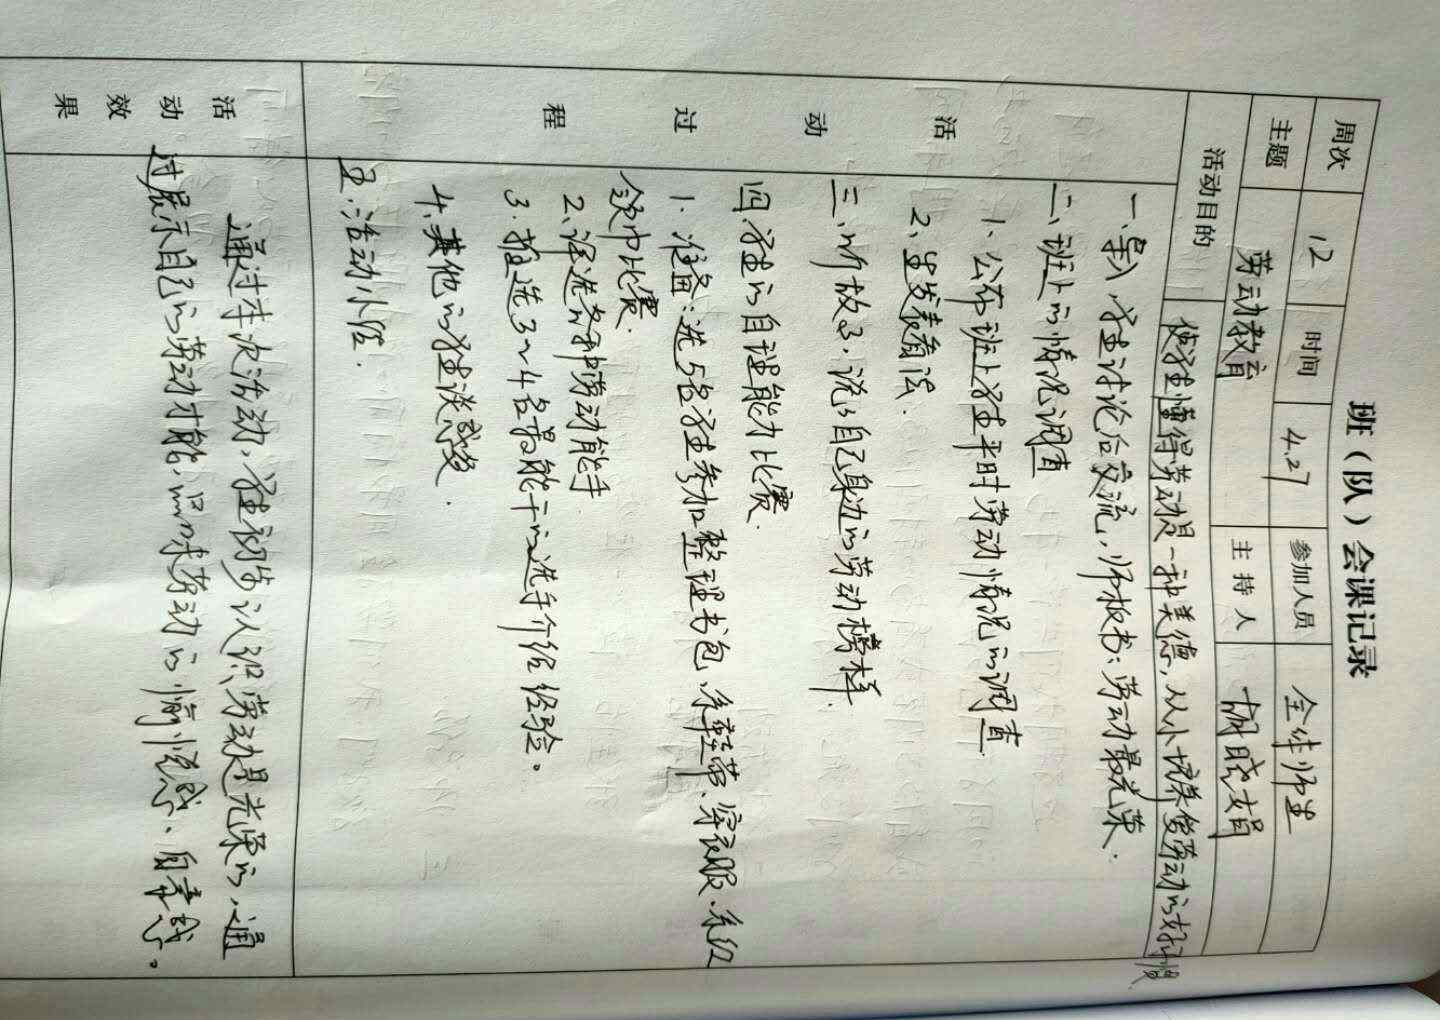 班（队）会课记录
周次 12 时间 4.27 参加人员 全体师生
主题 劳动教育 主持人
活动目的 使学生懂得劳动是一种美德，从小培养爱劳动的好习惯
活动过程
一、导入，学生讨论后交流，师板书：劳动最光荣．
二、班上的情况调查
1、公布班上学生平时劳动情况的调查
2、生发表看法．
三、听故事．说说自己身边的劳动榜样．
四、学生的自理能力比赛．
1．准备：选5名学生参加整理书包、系鞋带、穿衣服、系红
领巾比赛．
2、评选各种劳动能手
3．推选3~4名最能干的选手介绍经验。
4、其他的学生谈感受．
五、活动小结．
活动效果
通过本次活动，学生初步认识劳动是光荣的，通
过展示自己的劳动才能，品味劳动的愉悦感、自豪感。